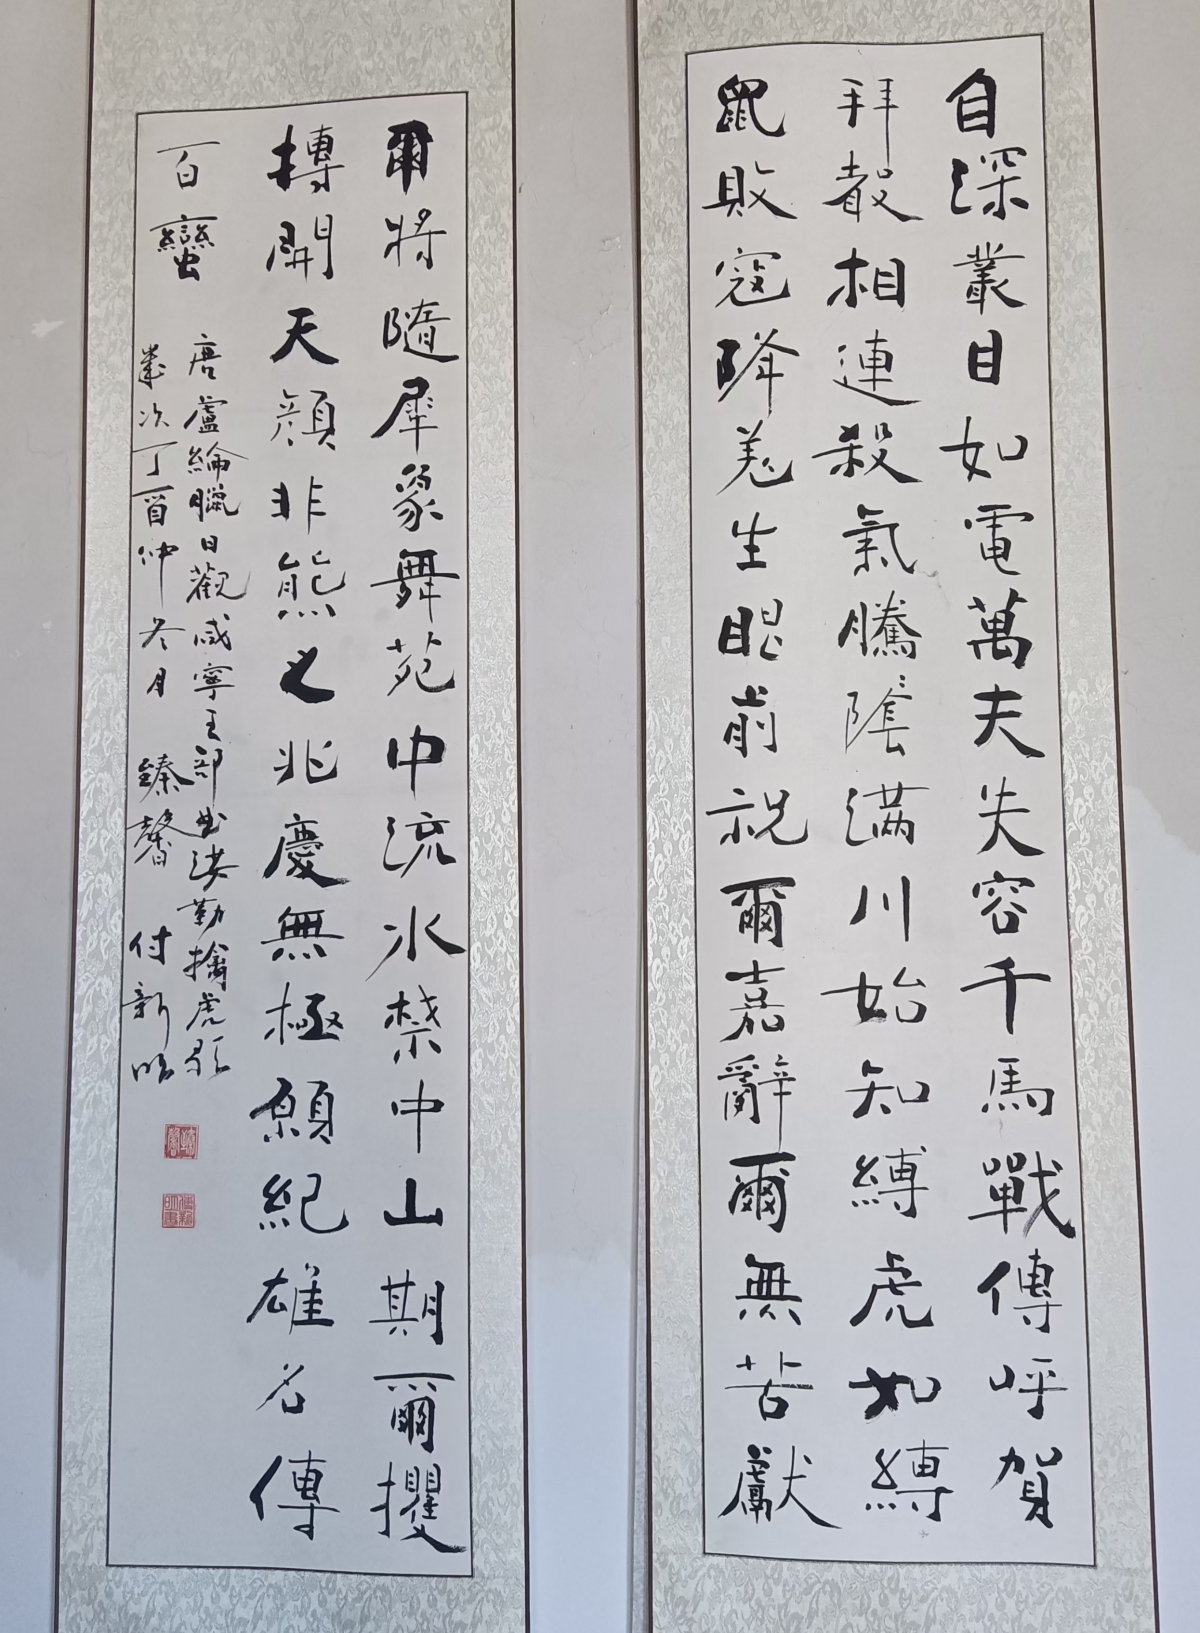 自深叢目如電萬夫失容千馬戰傳呼賀
拜聲相連殺氣騰陰滿川始知縛虎如縛
鼠敗寇降羌生眼前祝爾嘉辭爾無苦獻
爾將隨犀象舞苑中流水禁中山期爾攫
搏開天顔非熊之兆慶無極願紀雄名傳
百蠻
唐盧綸臘日觀咸寧王部曲娑勒擒虎歌
歲次丁酉仲冬月 臻馨 付新明